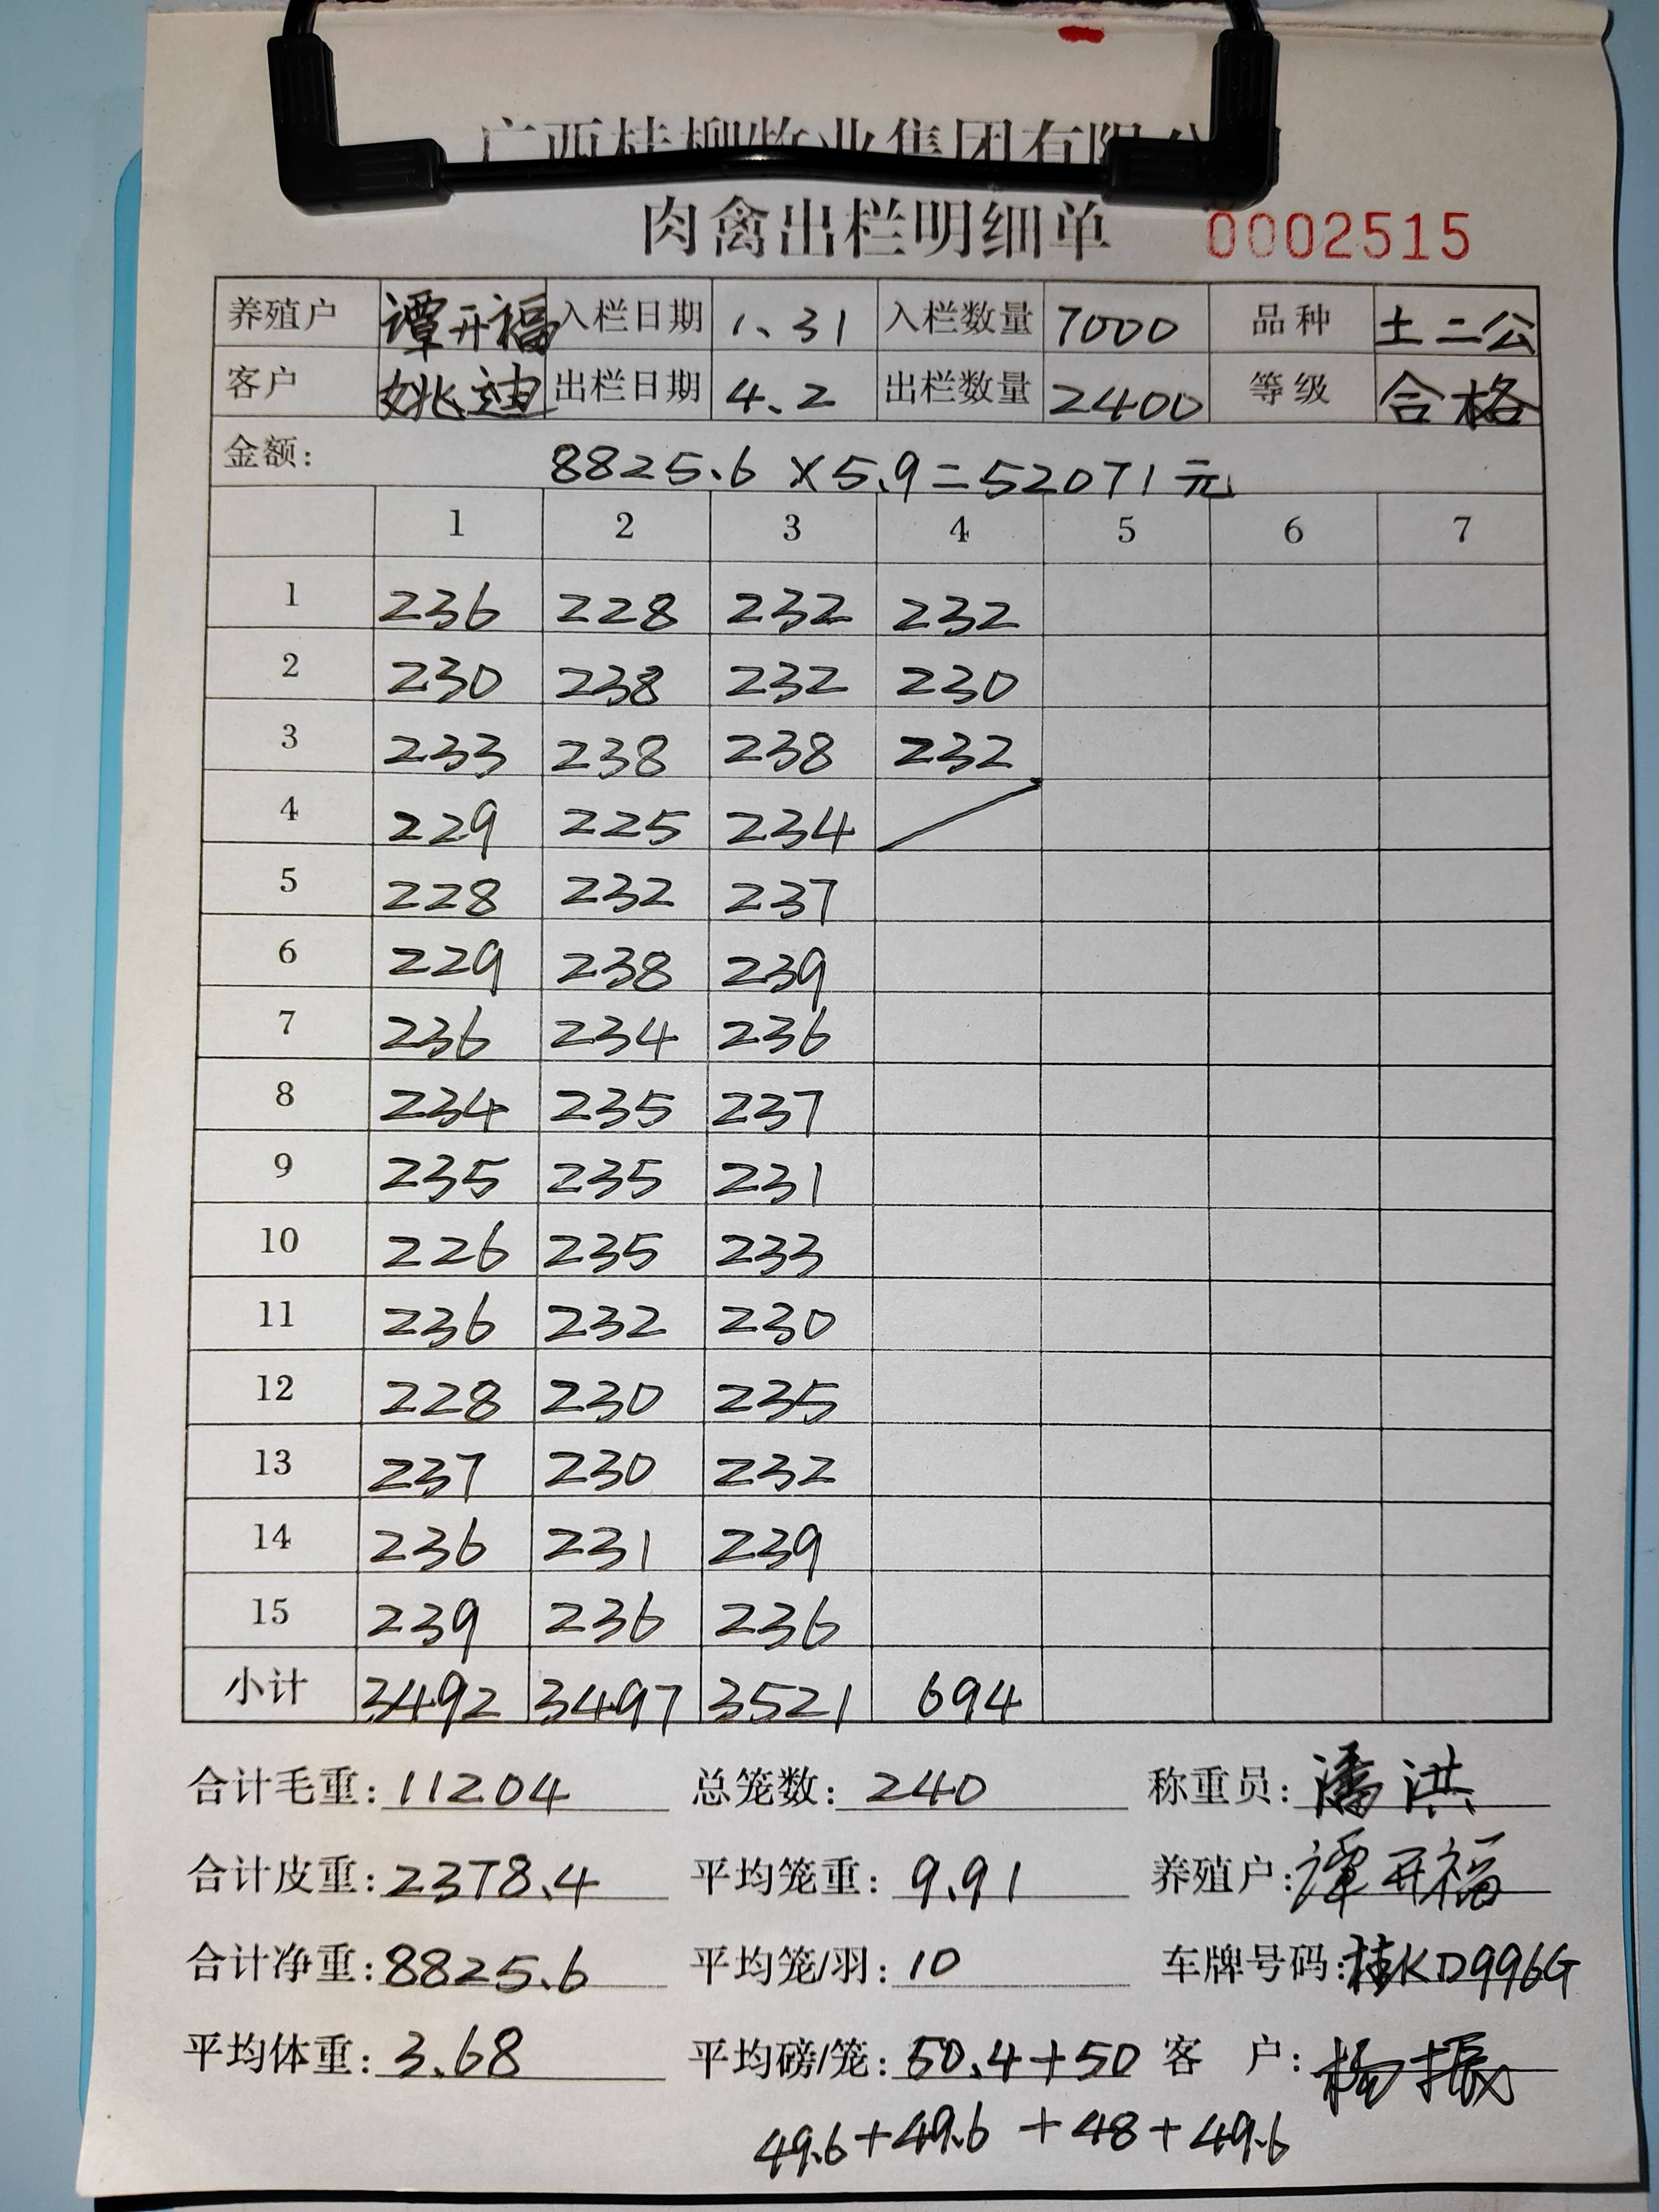 广西桂柳牧业集团有限公
肉禽出栏明细单 0002515
养殖户 谭开福 入栏日期 1、31 入栏数量 7000 品种 土二公
客户 姚迪 出栏日期 4、2 出栏数量 2400 等级 合格
金额: 8825.6×5.9=52071元
1 2 3 4 5 6 7
1 236 228 232 232
2 230 238 232 230
3 233 238 238 232
4 229 225 234
5 228 232 237
6 229 238 239
7 236 234 236
8 234 235 237
9 235 235 231
10 226 235 233
11 236 232 230
12 228 230 235
13 237 230 232
14 236 231 239
15 239 236 236
小计 3492 3497 3521 694
合计毛重: 11204 总笼数: 240 称重员: 潘洪
合计皮重: 2378.4 平均笼重: 9.91 养殖户: 谭开福
合计净重: 8825.6 平均笼/羽: 10 车牌号码: 桂KD996G
平均体重: 3.68 平均磅/笼: 50.4+50 客 户: 杨振
49.6+49.6+48+49.6